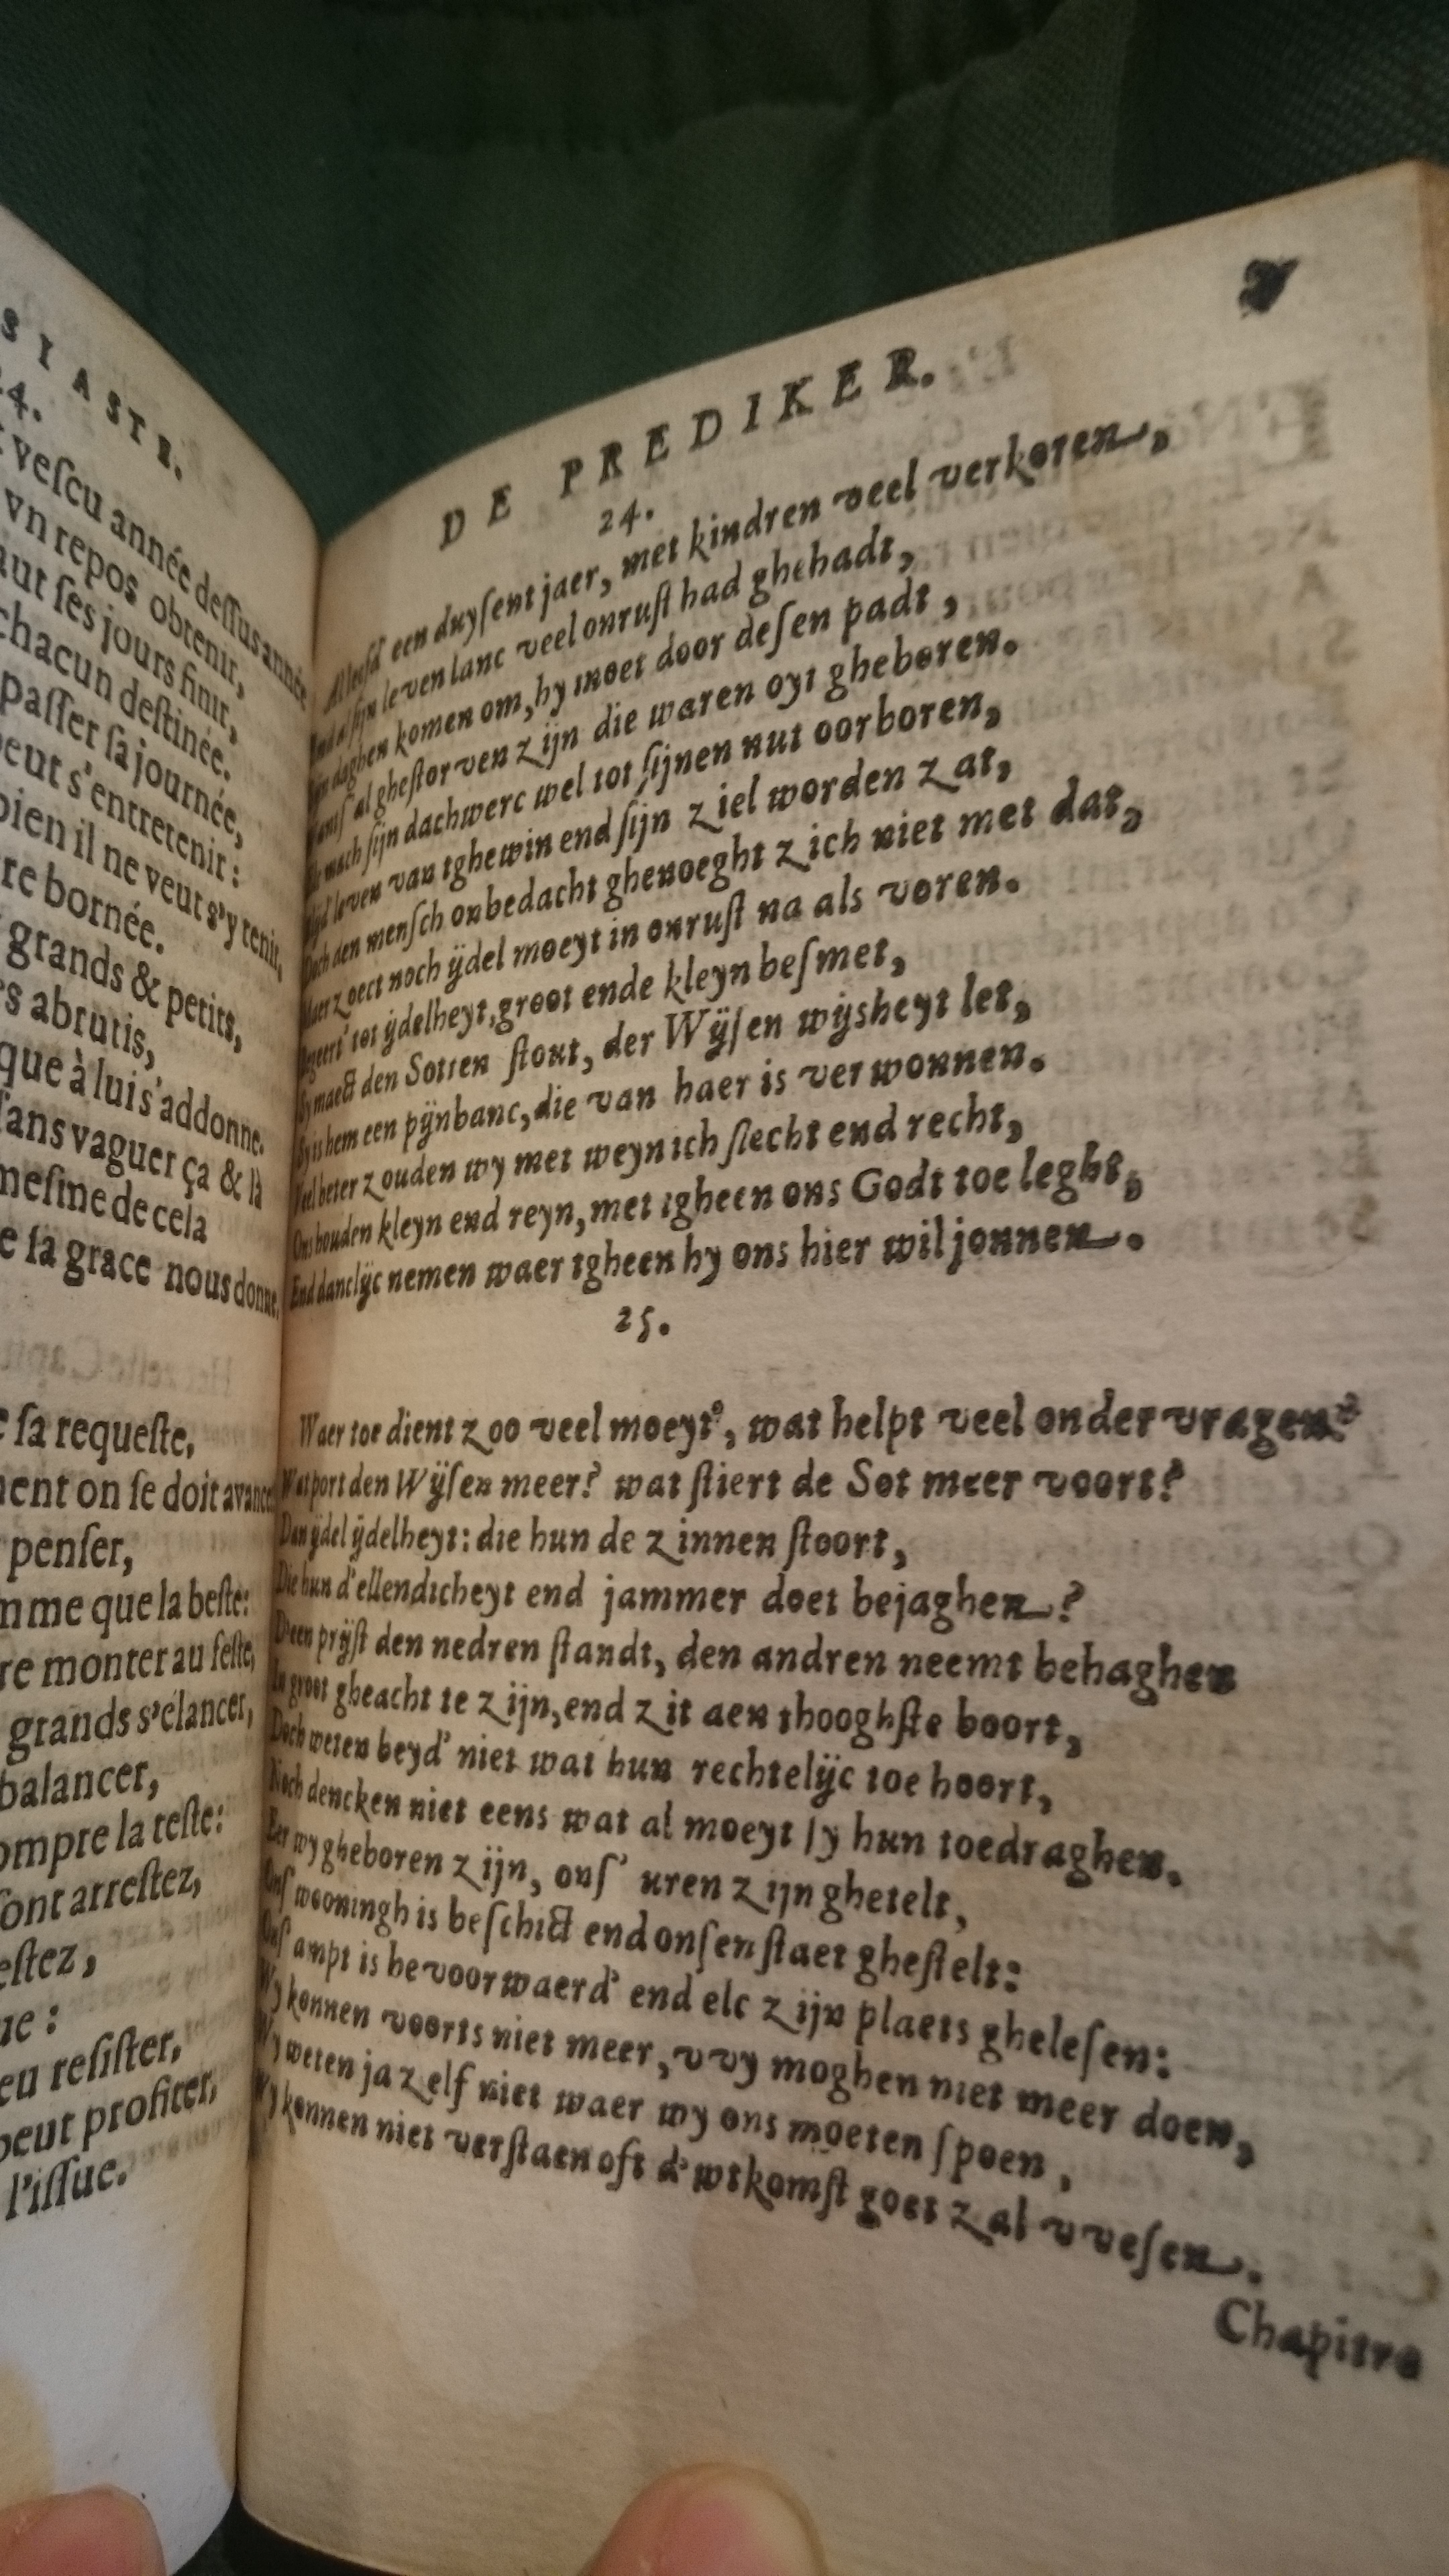 SIASTE.
24.
vescu année dessus année
vn repos obtenir,
ses jours finir,
chacun destinée.
passer sa journée,
peut s'entretenir:
bien il ne veut s'y tenir,
bornée.
grands & petits,
abrutis,
que à lui s'addonne.
sans vaguer ça & là
mesme de cela
sa grace nous donne.
sa requeste,
on se doit
penser,
que la beste:
monter au feste,
grands s'élancer,
balancer,
la reste:
sont arrestez,
resister,
peut profiter,
l'issue.
DE PREDIKER.
24.
een duysent jaer, met kindren veel verkoren,
sijn leven lanc veel onrust had ghehadt,
daghen komen om, hy moet door desen padt,
al ghestorven zijn die waren oyt gheboren.
mach sijn dachwerc wel tot sijnen nut oorboren,
leven van tghewin end sijn ziel worden zat,
Doch den mensch onbedacht ghenoeght zich niet met dat,
Maer zoect noch ijdel moeyt in onrust na als voren.
tot ijdelheyt, groot ende kleyn besmet,
maect den Sotten stout, der Wijsen wijsheyt let,
is hem een pijnbanc, die van haer is verwonnen.
Veel beter zouden wy met weynich slecht end recht,
Ons houden kleyn end reyn, met tgheen ons Godt toe leght,
End danclijc nemen waer tgheen hy ons hier wil jonnen.
25.
Waer toe dient zoo veel moeyt', wat helpt veel ondervragen?
Wat port den Wijsen meer? wat stiert de Sot meer voort?
Dan ijdel ijdelheyt: die hun de zinnen stoort,
Die hun d'ellendicheyt end jammer doet bejaghen?
Deen prijst den nedren standt, den andren neemt behaghen
In groot gheacht te zijn, end zit aen thooghste boort,
Doch weten beyd' niet wat hun rechtelijc toe hoort,
Noch dencken niet eens wat al moeyt sy hun toedraghen.
Eer wy gheboren zijn, ons' uren zijn ghetelt,
Ons' wooningh is beschict end onsen staet ghestelt:
Ons' ampt is bevoorwaerd' end elc zijn plaets ghelesen:
Wy konnen voorts niet meer, vvy moghen niet meer doen,
Wy weten ja zelf niet waer wy ons moeten spoen,
Wy konnen niet verstaen oft d'wtkomst goet zal vvesen.
Chapitre